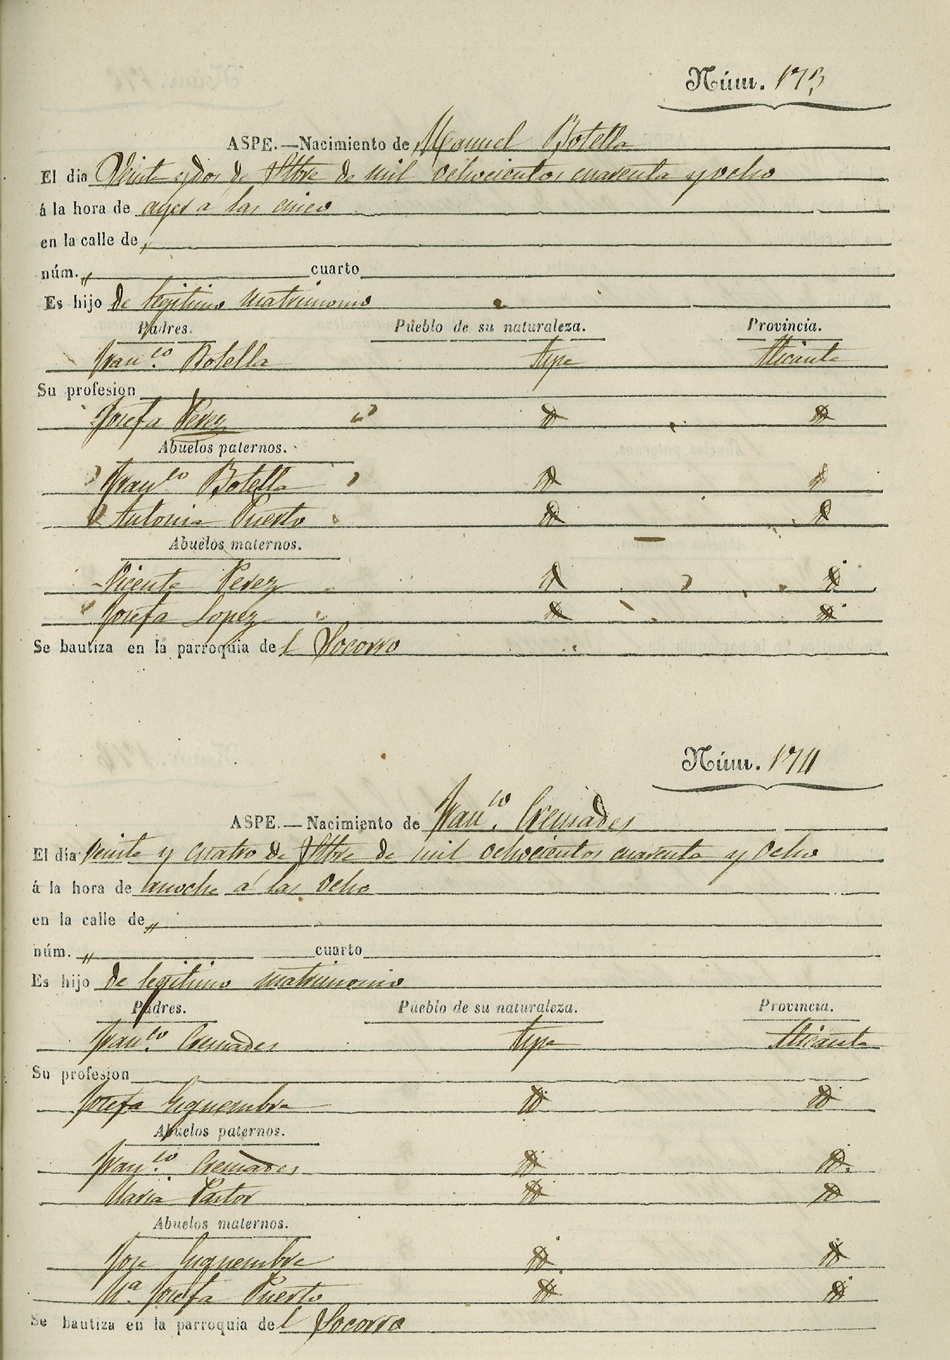 Núm. 173
ASPE.—Nacimiento de Manuel Botella
El dia Veinte y dos de Stbre de mil ochocientos cuarenta y ocho
á la hora de ayer a las cinco
en la calle de "
núm. " cuarto
Es hijo de legitimo matrimonio
Padres. Pueblo de su naturaleza. Provincia.
Franco. Botella Aspe Alicante
Su profesion
Josefa Perez " Id Id
Abuelos paternos.
Franco Botella Id Id
Antonia Puerto Id Id
Abuelos maternos.
Vicente Perez Id Id
Josefa Lopez " Id Id
Se bautiza en la parroquia del Socorro
Núm. 174
ASPE.—Nacimiento de Franco. Cremades
El dia Veinte y cuatro de Stbre de mil ochocientos cuarenta y ocho
á la hora de anoche á las ocho
en la calle de "
núm. " cuarto
Es hijo de legitimo matrimonio
Padres. Pueblo de su naturaleza. Provincia.
Franco. Cremades Aspe Alicante
Su profesion
Josefa Id Id
Abuelos paternos.
Franco. Cremades Id Id.
Maria Pastor Id Id
Abuelos maternos.
Jose Id Id
Ma Josefa Puerto Id Id
Se bautiza en la parroquia del Socorro